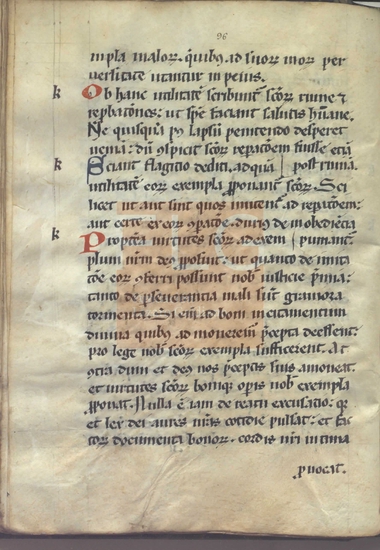 96
mpla malor. quibꝫ ad suor mor per
uersitatē utantur in peius.
k Ob hanc utilitatē scribunt scōr ruine ⁊
rep̱batōnes: ut spē faciant salutis hūane.
Ne quisquā pꝰ lapsū penitendo desperet
ueniā: dū ꝯspicit scōr reparatōem fuisse etiā
k Sciant flagitio dediti, ad quā | post ruinā.
utilitatē eor exempla ꝓponant scōr. Sci
licet ut aut sint quos imitent ad reparatōem:
aut certe ex eor ꝯparatōe durꝰ de inobediēcia
k Propterea uirtutes scōr ad exem | pumant
plum nr̄m deꝰ ꝓposuit: ut quanto de imita
tōe eor ꝯferri possunt nob iusticie p̄mia:
tanto de perseuerantia mali sint grauiora
tormenta. Si em̄ ad boni incitamentum
diuina quibꝫ admoueremur p̄cepta deessent:
pro lege nob scōr exempla sufficerent. At
ꝯtra dum et deꝰ nos p̄ceptis suis amoneat
et uirtutes scōr boniqꝫ operis nob exempla
ꝓponat. Nulla ē iam de reatu excusatio: qꝛ
et lex dei aures nr̄as cottidie pulsat: et fac
tor documenta bonor. cordis nr̄i intima
ꝓuocat.